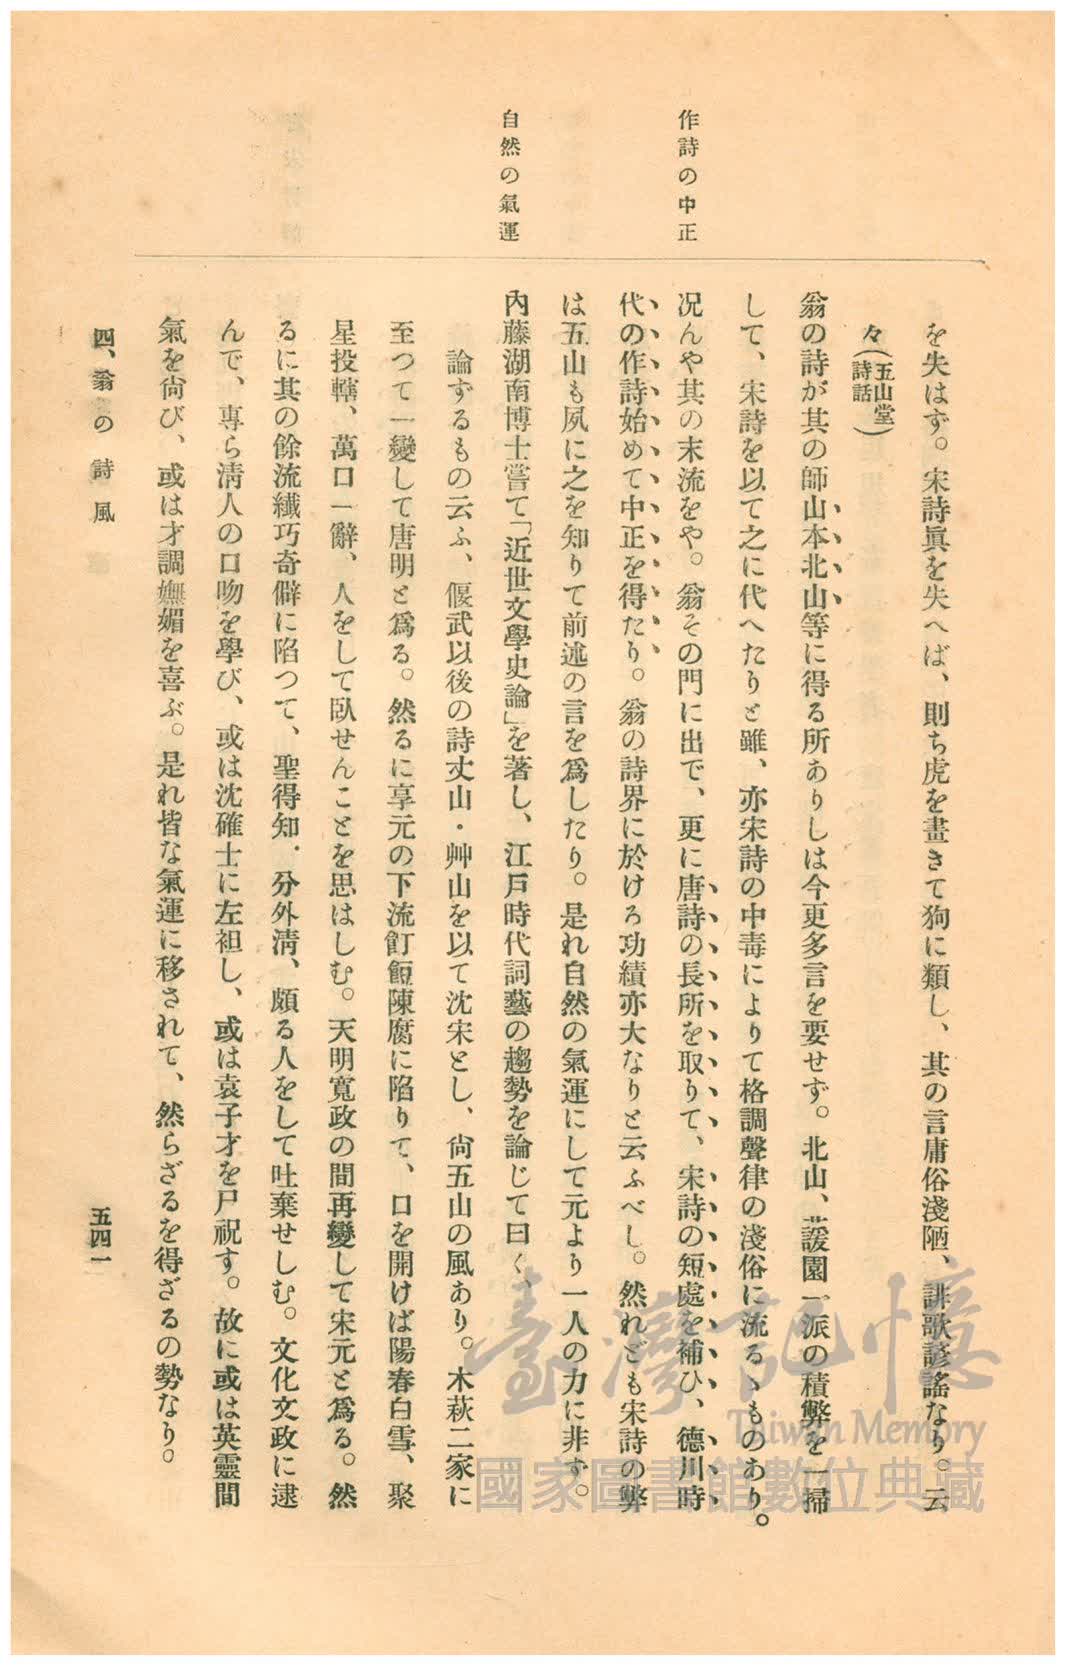 作詩の中正
自然の氣運
を失はず。宋詩眞を失へば、則ち虎を畫きて狗に類し、其の言庸俗淺陋、誹歌諺謠なり。云
々(五山堂詩話)
翁の詩が其の師山本北山等に得る所ありしは今更多言を要せず。北山、蘐園一派の積弊を一掃
して、宋詩を以て之に代へたりと雖、亦宋詩の中毒によりて格調聲律の淺俗に流るゝものあり。
况んや其の末流をや。翁その門に出で、更に唐詩の長所を取りて、宋詩の短處を補ひ、德川時
代の作詩始めて中正を得たり。翁の詩界に於ける功績亦大なりと云ふべし。然れども宋詩の弊
は五山も夙に之を知りて前述の言を爲したり。是れ自然の氣運にして元より一人の力に非ず。
內藤湖南博士嘗て「近世文學史論」を著し、江戶時代詞藝の趨勢を論じて曰く、
論ずるもの云ふ、偃武以後の詩丈山・艸山を以て沈宋とし、尙五山の風あり。木萩二家に
至つて一變して唐明と爲る。然るに享元の下流飣餖陳腐に陷りて、口を開けば陽春白雪、聚
星投轄、萬口一辭、人をして臥せんことを思はしむ。天明寬政の間再變して宋元と爲る。然
るに其の餘流纎巧奇僻に陷つて、聖得知・分外淸、頗る人をして吐棄せしむ。文化文政に逮
んで、專ら淸人の口吻を學び、或は沈確士に左袒し、或は袁子才を尸祝す。故に或は英靈間
氣を尙び、或は才調嫵媚を喜ぶ。是れ皆な氣運に移されて、然らざるを得ざるの勢なり。
四、翁の詩風
五四一
臺灣記憶
Taiwan Memory
國家圖書館數位典藏